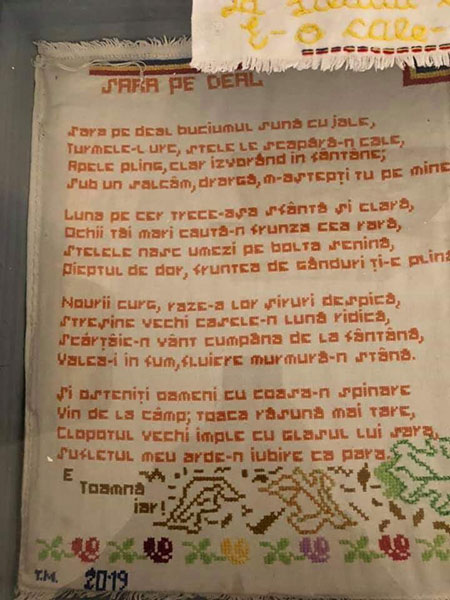 E-o cale-
SARA PE DEAL
Sara pe deal buciumul sună cu jale,
Turmele-l urc, stele le scapără-n cale,
Apele pling, clar izvorând in fântâne;
Sub un salcâm, dragă, m-astepți tu pe mine
Luna pe cer trece-asa sfântă si clară,
Ochii tăi mari caută-n frunza cea rară,
Stelele nasc umezi pe bolta senină,
Pieptul de dor, fruntea de gânduri ți-e plină
Nourii curg, raze-a lor siruri despică,
Stresine vechi casele-n lună ridică,
Scârțâie-n vânt cumpăna de la fântână,
Valea-i in fum, fluiere murmură-n stână.
Si osteniți oameni cu coasa-n spinare
Vin de la câmp; toaca răsună mai tare,
Clopotul vechi imple cu glasul lui sara,
Sufletul meu arde-n iubire ca para.
E
Toamnă
iar!
T.M. 2019